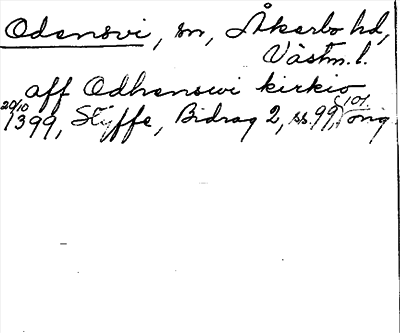 Odensvi, sn, Åkerbo hd,
Västm. l.
aff Odhenswi kirkio
20/10 1399, Styffe, Bidrag 2, ss. 99, (101. orig